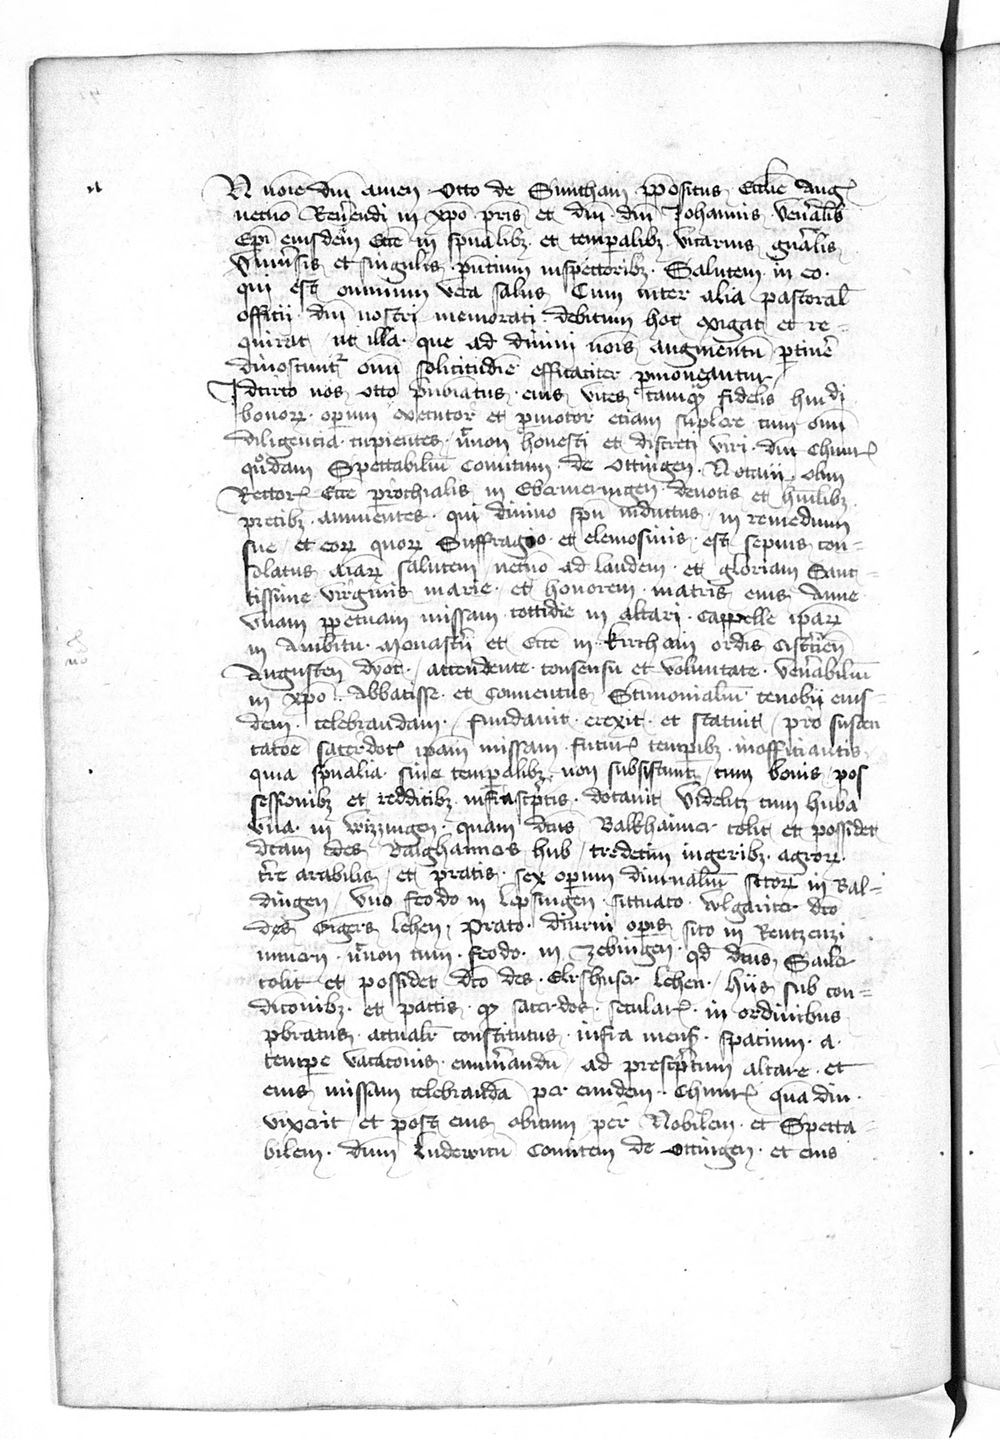 N noīe dm̄ amen Otto de Sunthain p̄positus Eccl̄ie Aug
necno Reuerendi in xp̄o pris et dm̄ dm̄ Johannis Ven̄abilis
Ep̄i eiusdem Ecc̄e in sp̄ualibꝫ et temp̄alibꝫ vicarius gn̄alis
Vniu̓sis et singulis p̄ntium inspectoribꝫ Salutem in eo
qui est omnium vera salus Cum inter alia pastoral̄
officii dm̄ nostri memorati debitum hoc exigat et re=
quirat ut illa que ad diuini noīs augmentū p̄tine̓
dinoscunt᷑ om̄i solicitudīe efficaciter p̄moueantur
Idcirco nos Otto p̄nōiatus eius vices tamqͣ fidelis huiꝰdi
bonoꝝ operum executor et p̄motor etiam suplere cum om̄i
diligencia cupientes n̄non honesti et discreti viri dm̄ Chunr̄
quōdam Spectabiliū Comitum de Ottingen Notarij olim
Rector̄ Ecc̄e p̄rochialis in Ebermeringen deuotis et hūilibꝫ
precibꝫ annuentes qui diuino sp̄u inductus in remedium
sue et eoꝝ quoꝝ Suffragio et elemosinis est sepius con=
solatus aīaꝝ salutem necno ad laudem et gloriam Sanc=
tissime virginis marie et honorem matris eius Anne
vnam p̄petuam missam cottidie in altari Cappelle ip̄aꝝ
in Ambitu Monasterii et Ecc̄e in kirchaim ordīs Cistercien̄
Augusten̄ dyoc̄ accedente consensu et voluntate Ven̄abilium
in xp̄o Abbatisse et Conuentus Sc̄timonialiū cenobij eius=
dem celebrandam fundauit erexit et statuit pro susten
tac̄oe sacerdot̄ ip̄am missam futur̄ temp̄ibꝫ inofficiantis
quia sp̄ualia sine temp̄alibꝫ non subsistunt cum bonis pos
sessionibꝫ et redditibꝫ infrasc̄ptis dotauit Videlicꝫ cum huba
Vna in Wizzingen quam dc̄us Balkhaimer colit et possidet
dc̄am des Balghaimers hub tredecim iugeribꝫ agroꝝ
t̄re arabilis et pratis sex operum diurnaliū sitoꝝ in Bal=
dingen Vno feodo in Lepsingen sittuato wlgariter dc̄o
des Gigers lehen Prato diurni op̄is sito in Rentzenzi
n̄non cum feodo in Zebingen qd̄ dc̄us Sailer
colit et possidet dc̄o des Elrshuser lehen hijs sub con=
dic̄onibꝫ et pactis qͥ sacerdos secular̄ in ordinibus
p̄bratus actualr̄ constitutus infra mens̄ spatium a
temp̄e vacac̄onis ad presc̄ptum altare et
eius missam celebrandā per eundem Chunr̄ quādiu
vixerit et post eius obitum per Nobilem et Specta
bilem dūm Ludewicū Comitem de Ottingen et eius